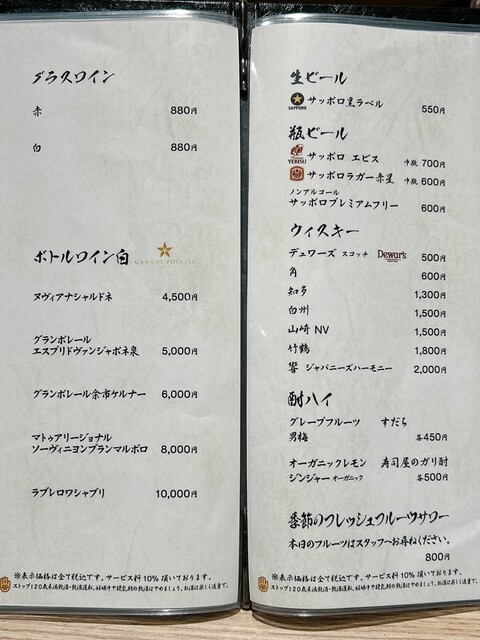 グラスワイン
赤 880円
白 880円
ボトルワイン白
GRANDE POLAIRE
ヌヴィアナシャルドネ 4,500円
グランポレール
エスプリドヴァンジャポネ泉 5,000円
グランポレール余市ケルナー 6,000円
マトゥアリージョナル
ソーヴィニヨンブランマルボロ 8,000円
ラブレロワシャブリ 10,000円
※表示価格は全て税込です。サービス料10%頂いております。
ストップ!20歳未満飲酒・飲酒運転。妊娠中や授乳期の飲酒はやめましょう。お酒は楽しく適量で。
生ビール
SAPPORO サッポロ黒ラベル 550円
瓶ビール
YEBISU サッポロ エビス 中瓶 700円
サッポロラガー赤星 中瓶 600円
ノンアルコール
サッポロプレミアムフリー 600円
ウィスキー
デュワーズ スコッチ Dewar's 500円
角 600円
知多 1,300円
白州 1,500円
山崎 NV 1,500円
竹鶴 1,800円
響 ジャパニーズハーモニー 2,000円
酎ハイ
グレープフルーツ すだち
男梅 各450円
オーガニックレモン 寿司屋のガリ酎
ジンジャー オーガニック 各500円
季節のフレッシュフルーツサワー
本日のフルーツはスタッフへお尋ねください。
800円
※表示価格は全て税込です。サービス料10%頂いております。
ストップ!20歳未満飲酒・飲酒運転。妊娠中や授乳期の飲酒はやめましょう。お酒は楽しく適量で。